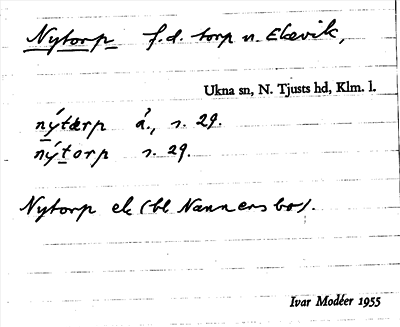 Nytorp f.d. torp u. Ekevik,
Ukna sn, N. Tjusts hd, Klm. l.
nýtærp å., s. 29.
nýtorp s. 29.
Nytorp ek (bl Nannersbo).
Ivar Modéer 1955